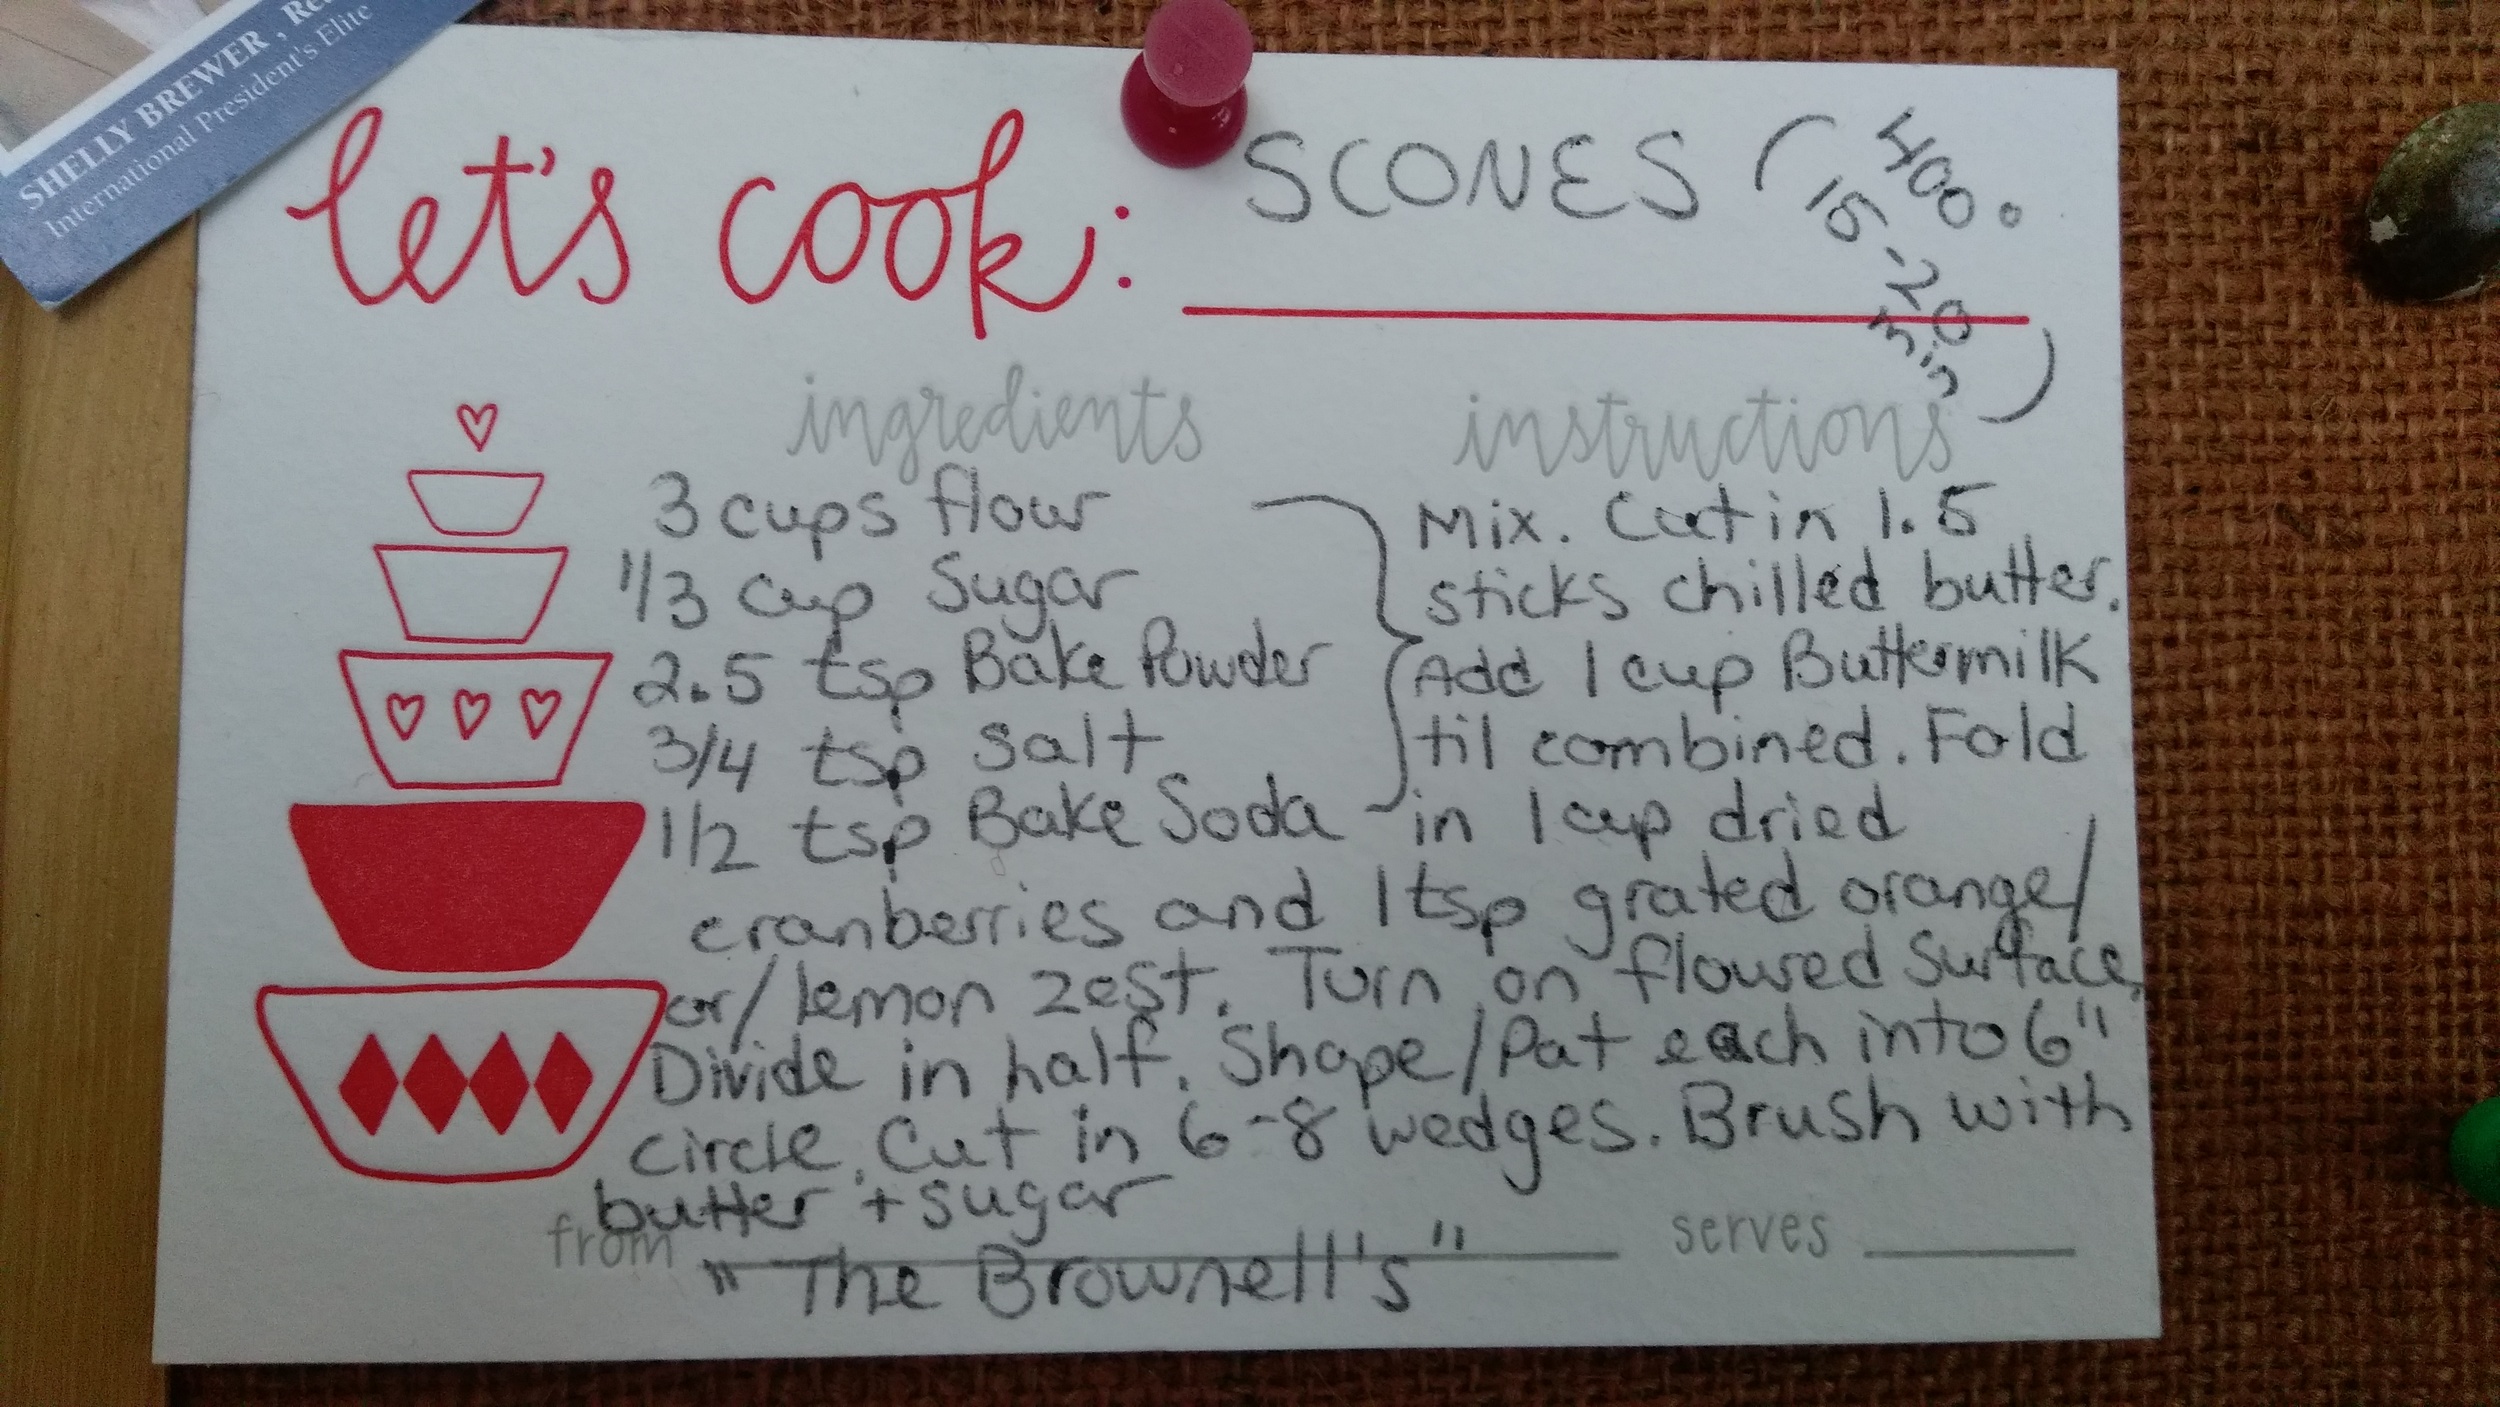 SHELLY BREWER, Re
International President's Elite
let's cook: SCONES (400°
15-20
min)
ingredients
instructions
3 cups flour
1/3 cup Sugar
2.5 tsp Bake Powder
3/4 tsp salt
1/2 tsp Bake Soda
Mix. Cut in 1.5
sticks chilled butter.
Add 1 cup Buttermilk
til combined. Fold
in 1 cup dried
cranberries and 1 tsp grated orange/
or/lemon zest. Turn on floured surface.
Divide in half. Shape/Pat each into 6"
circle. Cut in 6-8 wedges. Brush with
butter + sugar
from "The Brownell's"
serves